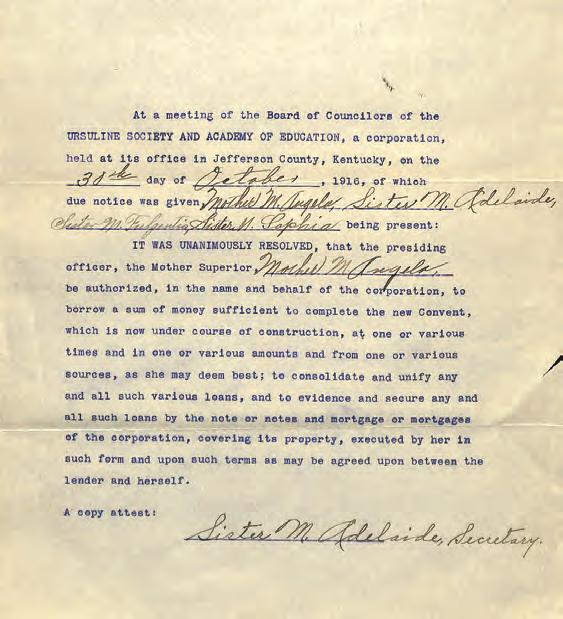 At a meeting of the Board of Councilors of the
URSULINE SOCIETY AND ACADEMY OF EDUCATION, a corporation,
held at its office in Jefferson County, Kentucky, on the
30th day of October, 1916, of which
due notice was given, Mother M. Angela, Sister M. Adelaide,
Sister M. Fulgentia, Sister M. Sophia being present:
IT WAS UNANIMOUSLY RESOLVED, that the presiding
officer, the Mother Superior, Mother M Angela,
be authorized, in the name and behalf of the corporation, to
borrow a sum of money sufficient to complete the new Convent,
which is now under course of construction, at one or various
times and in one or various amounts and from one or various
sources, as she may deem best; to consolidate and unify any
and all such various loans, and to evidence and secure any and
all such loans by the note or notes and mortgage or mortgages
of the corporation, covering its property, executed by her in
such form and upon such terms as may be agreed upon between the
lender and herself.
A copy attest:
Sister M. Adelaide, Secretary.